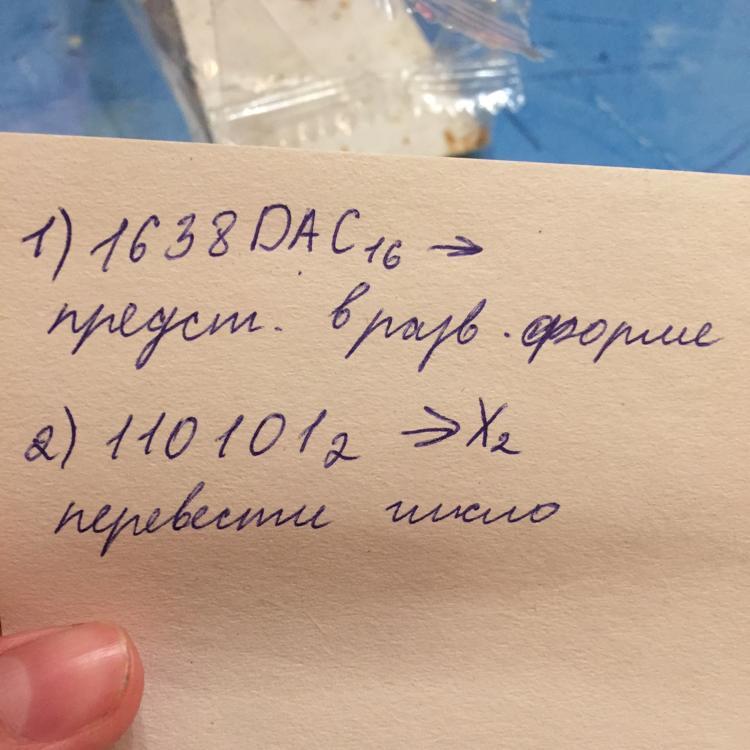 1) 1638DAC₁₆ →
предст. в разв. форме
2) 110101₂ → X₂
перевести число